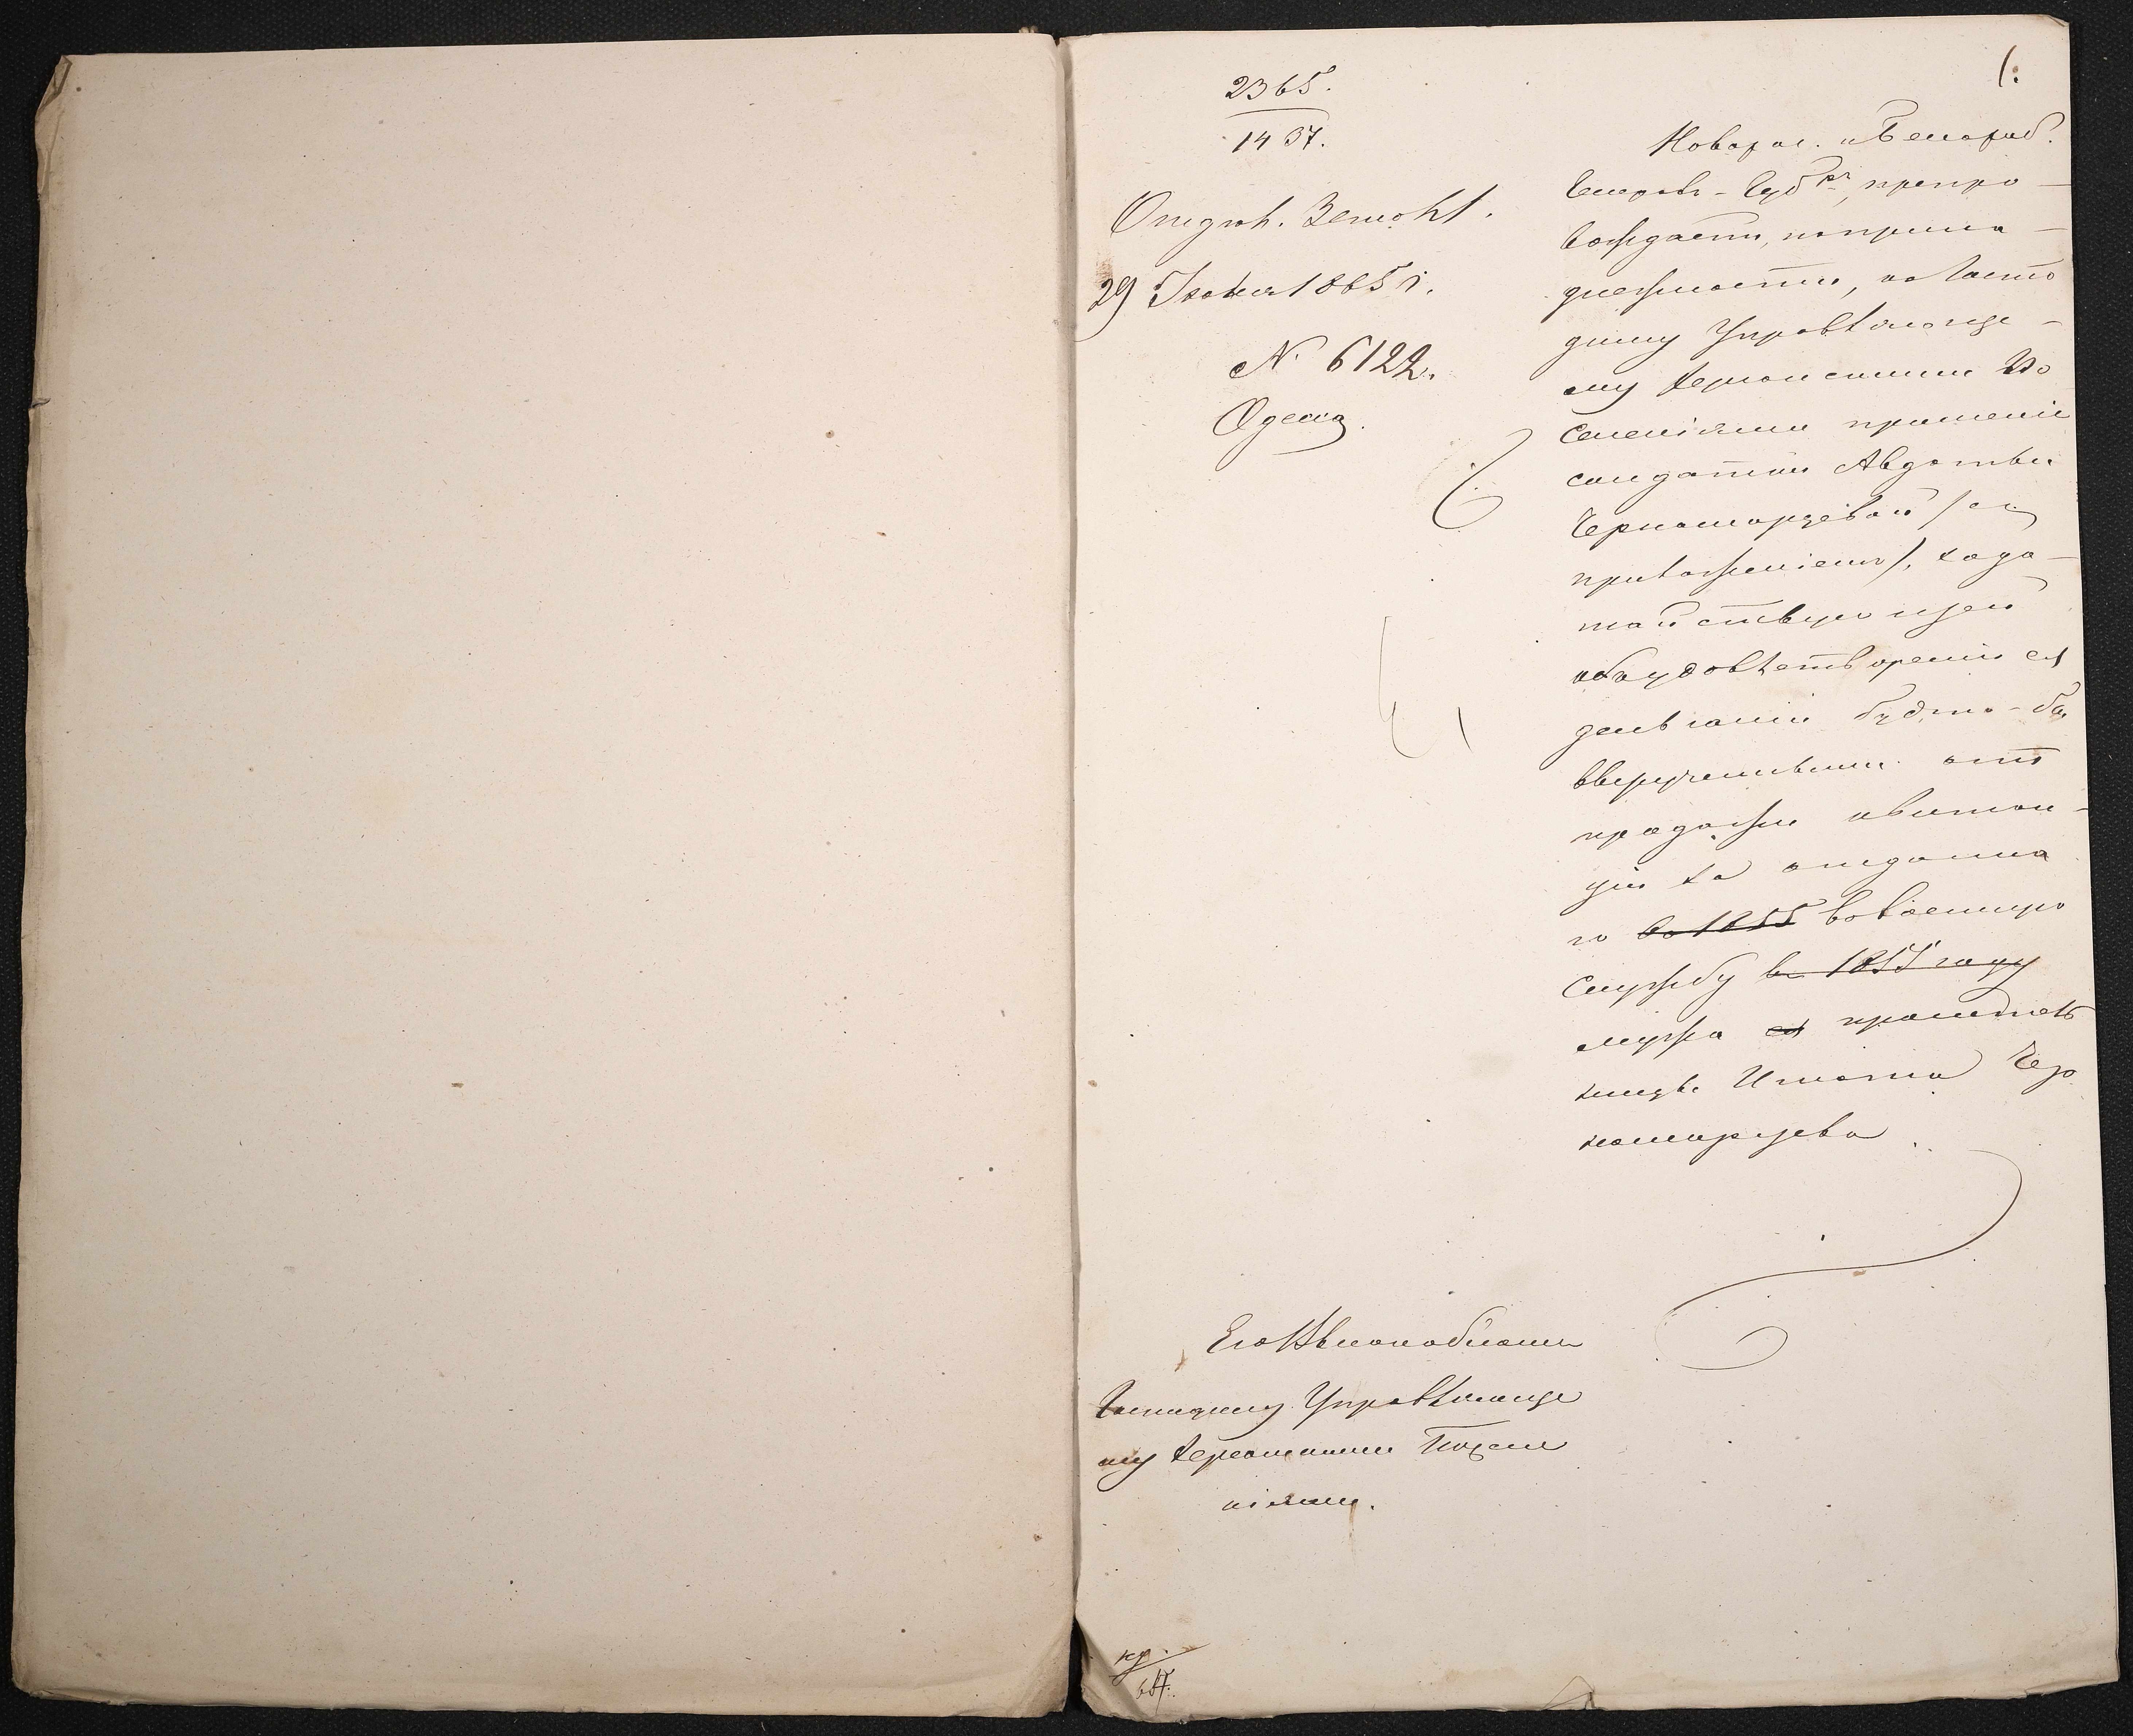 1.
2365.
1437.
Отдѣл. Земск.
29 Іюня 1865 г.
№ 6122.
Одесса.
Новорос. и Бессараб.
Генералъ-Губ-ръ, препро-
вождаетъ, по принад-
лежности, къ Госпо-
дину Управляюще-
му Херсонскими По
селеніями прошеніе
солдатки Авдотьи
Черноморцевой /съ
приложеніемъ/, хода-
тайствующей
объ удовлетвореніи ея
деньгами будто-бы
вырученными отъ
продажи квитан-
ціи за отданна
го во 1855 въ военную
службу въ 1855 году
мужа ея
Игната Чер
номорцева.
Его Высокоблагор.
Господину Управляюще
му Херсонскими Посел
ніями.